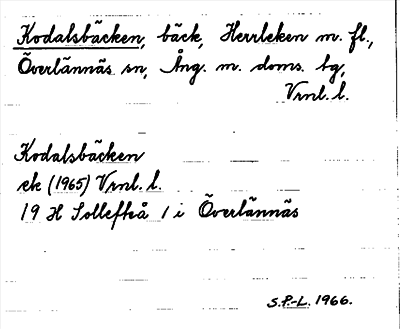 Kodalsbäcken, bäck, Herrleken m. fl.,
Överlännäs sn, Ång. m. doms. bg,
Vrnl. l.
Kodalsbäcken
ek (1965) Vrnl. l.
19 H Sollefteå 1 i Överlännäs
S.P.-L. 1966.